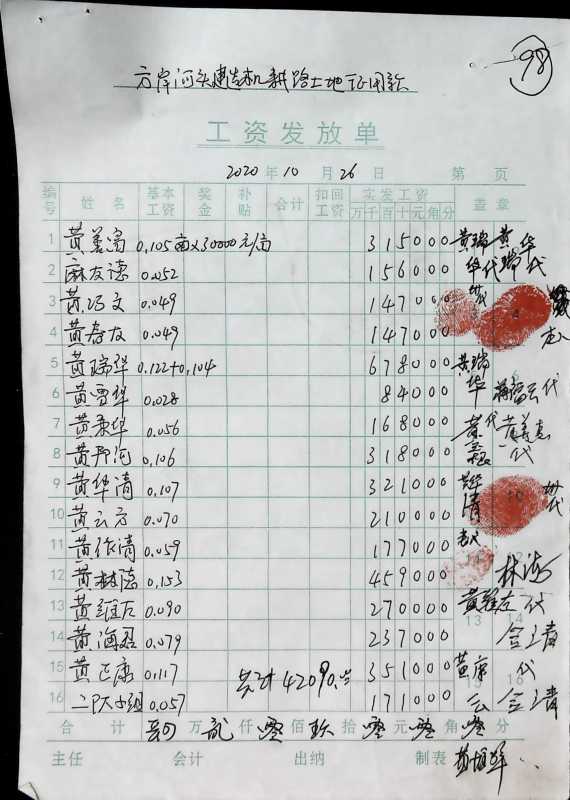 98
方岸河头建造机耕路土地征用款
工资发放单
2020年10月26日 第 页
编号 姓名 基本工资 奖金 补贴 合计 扣回工资 实发工资 盖章
万千百十元角分
1 黄善渴 0.105亩×30000元/亩 315000 黄瑞华代 黄瑞华代
2 麻友德 0.052 156000
3 黄巧文 0.049 147000
4 黄春友 0.049 147000
5 黄瑞华 0.122+0.104 678000 黄瑞华
6 黄雪华 0.028 84000 代
7 黄秉华 0.056 168000 代
8 黄邦河 0.106 318000 代
9 黄华清 0.107 321000 黄华清
10 黄云方 0.070 210000
11 黄作清 0.059 177000
12 黄林德 0.153 459000 林
13 黄维左 0.090 270000 黄维左代
14 黄海君 0.079 237000
15 黄正康 0.117 共计42090.00 351000 代
16 二队小组 0.057 171000
合计 肆万贰仟零佰玖拾零元零角零分
主任 会计 出纳 制表 黄